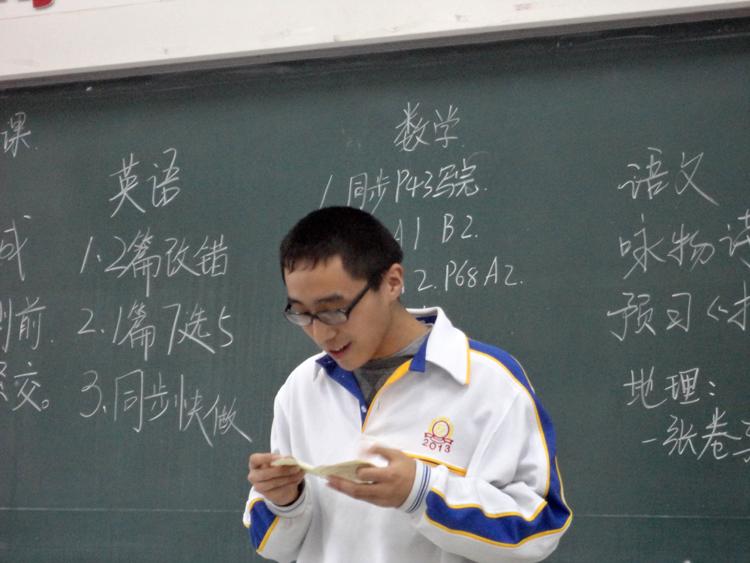 课
成
前
交。
英语
1.2篇改错
2.1篇7选5
3.同步快做
数学
1.同步P43写完.
A1 B2.
2.P68A2.
语文
咏物诗
预习《
地理:
一张卷
2013